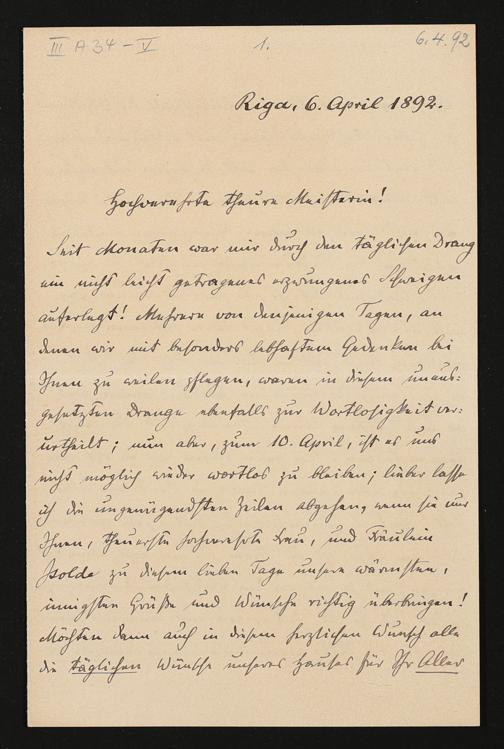 III A 34 – V
1.
6.4.92
Riga, 6. April 1892.
Hochverehrte theure Meisterin!
Seit Monaten war mir durch den täglichen Drang
ein nicht leicht getragenes erzwungenes Schweigen
auferlegt! Mehrere von denjenigen Tagen, an
denen wir mit besonders lebhaftem Gedenken bei
Ihnen zu weilen pflegen, waren in diesem unaus-
gesetzten Drange ebenfalls zur Wortlosigkeit ver-
urtheilt; nun aber, zum 10. April, ist es uns
nicht möglich wieder wortlos zu bleiben; lieber lasse
ich die ungenügendsten Zeilen abgehen, wenn sie nur
Ihnen, theuerste hochverehrte Frau, und Fräulein
Isolde zu diesem lieben Tage unsere wärmsten,
innigsten Grüße und Wünsche richtig überbringen!
Möchten dann auch in diesem herzlichen Wunsch alle
die täglichen Wünsche unseres Hauses für Ihr Aller